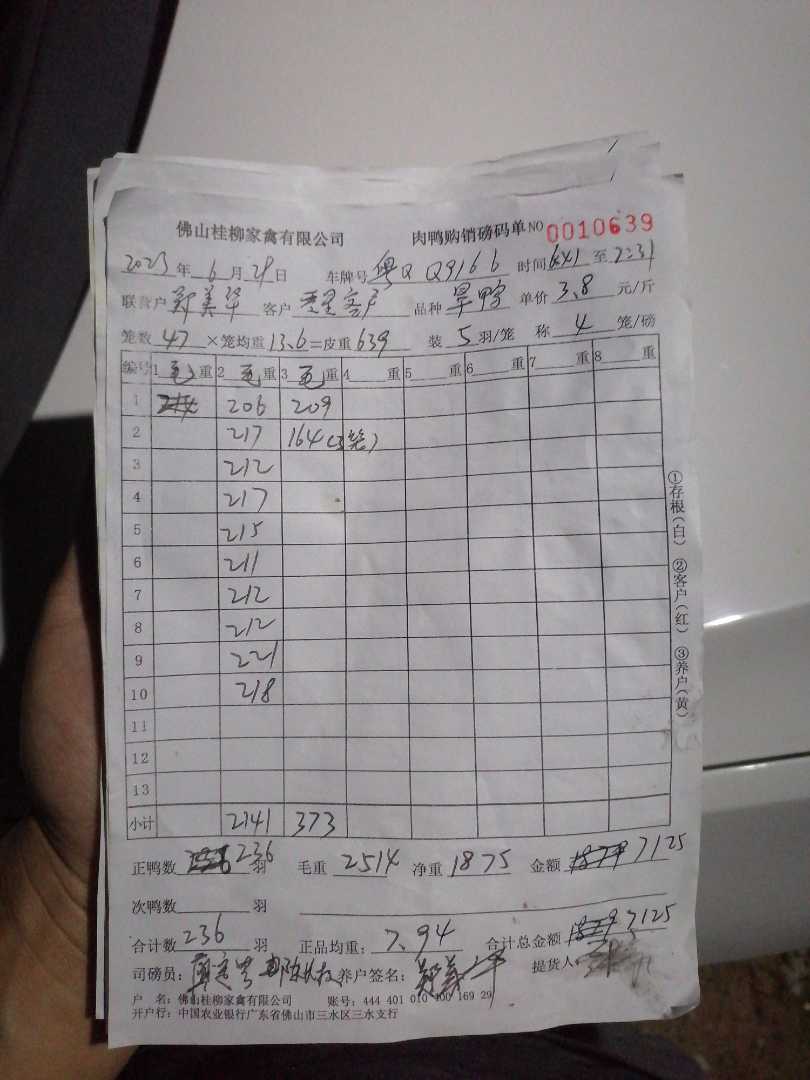 佛山桂柳家禽有限公司 肉鸭购销磅码单 NO 0010639
2023年6月29日 车牌号 粤Q Q9166 时间 至2:31
联营户 郑美华 客户 客户 品种 旱鸭 单价 3.8 元/斤
笼数 47 ×笼均重 13.6=皮重 639 装 5 羽/笼 称 4 笼/磅
编号 1 毛 重 2 毛 重 3 毛 重 4 重 5 重 6 重 7 重 8 重
1 206 209
2 217 164(3笼)
3 212
4 217
5 215
6 211
7 212
8 212
9 221
10 218
11
12
13
小计 2141 373
正鸭数 236 羽 毛重 2514 净重 1875 金额 7125
次鸭数 羽
合计数 236 羽 正品均重: 7.94 合计总金额 7125
司磅员: 养户签名: 郑美华 提货人
户 名: 佛山桂柳家禽有限公司 账号: 444 401 010 400 169 29
开户行: 中国农业银行广东省佛山市三水区三水支行
①存根(白) ②客户(红) ③养户(黄)